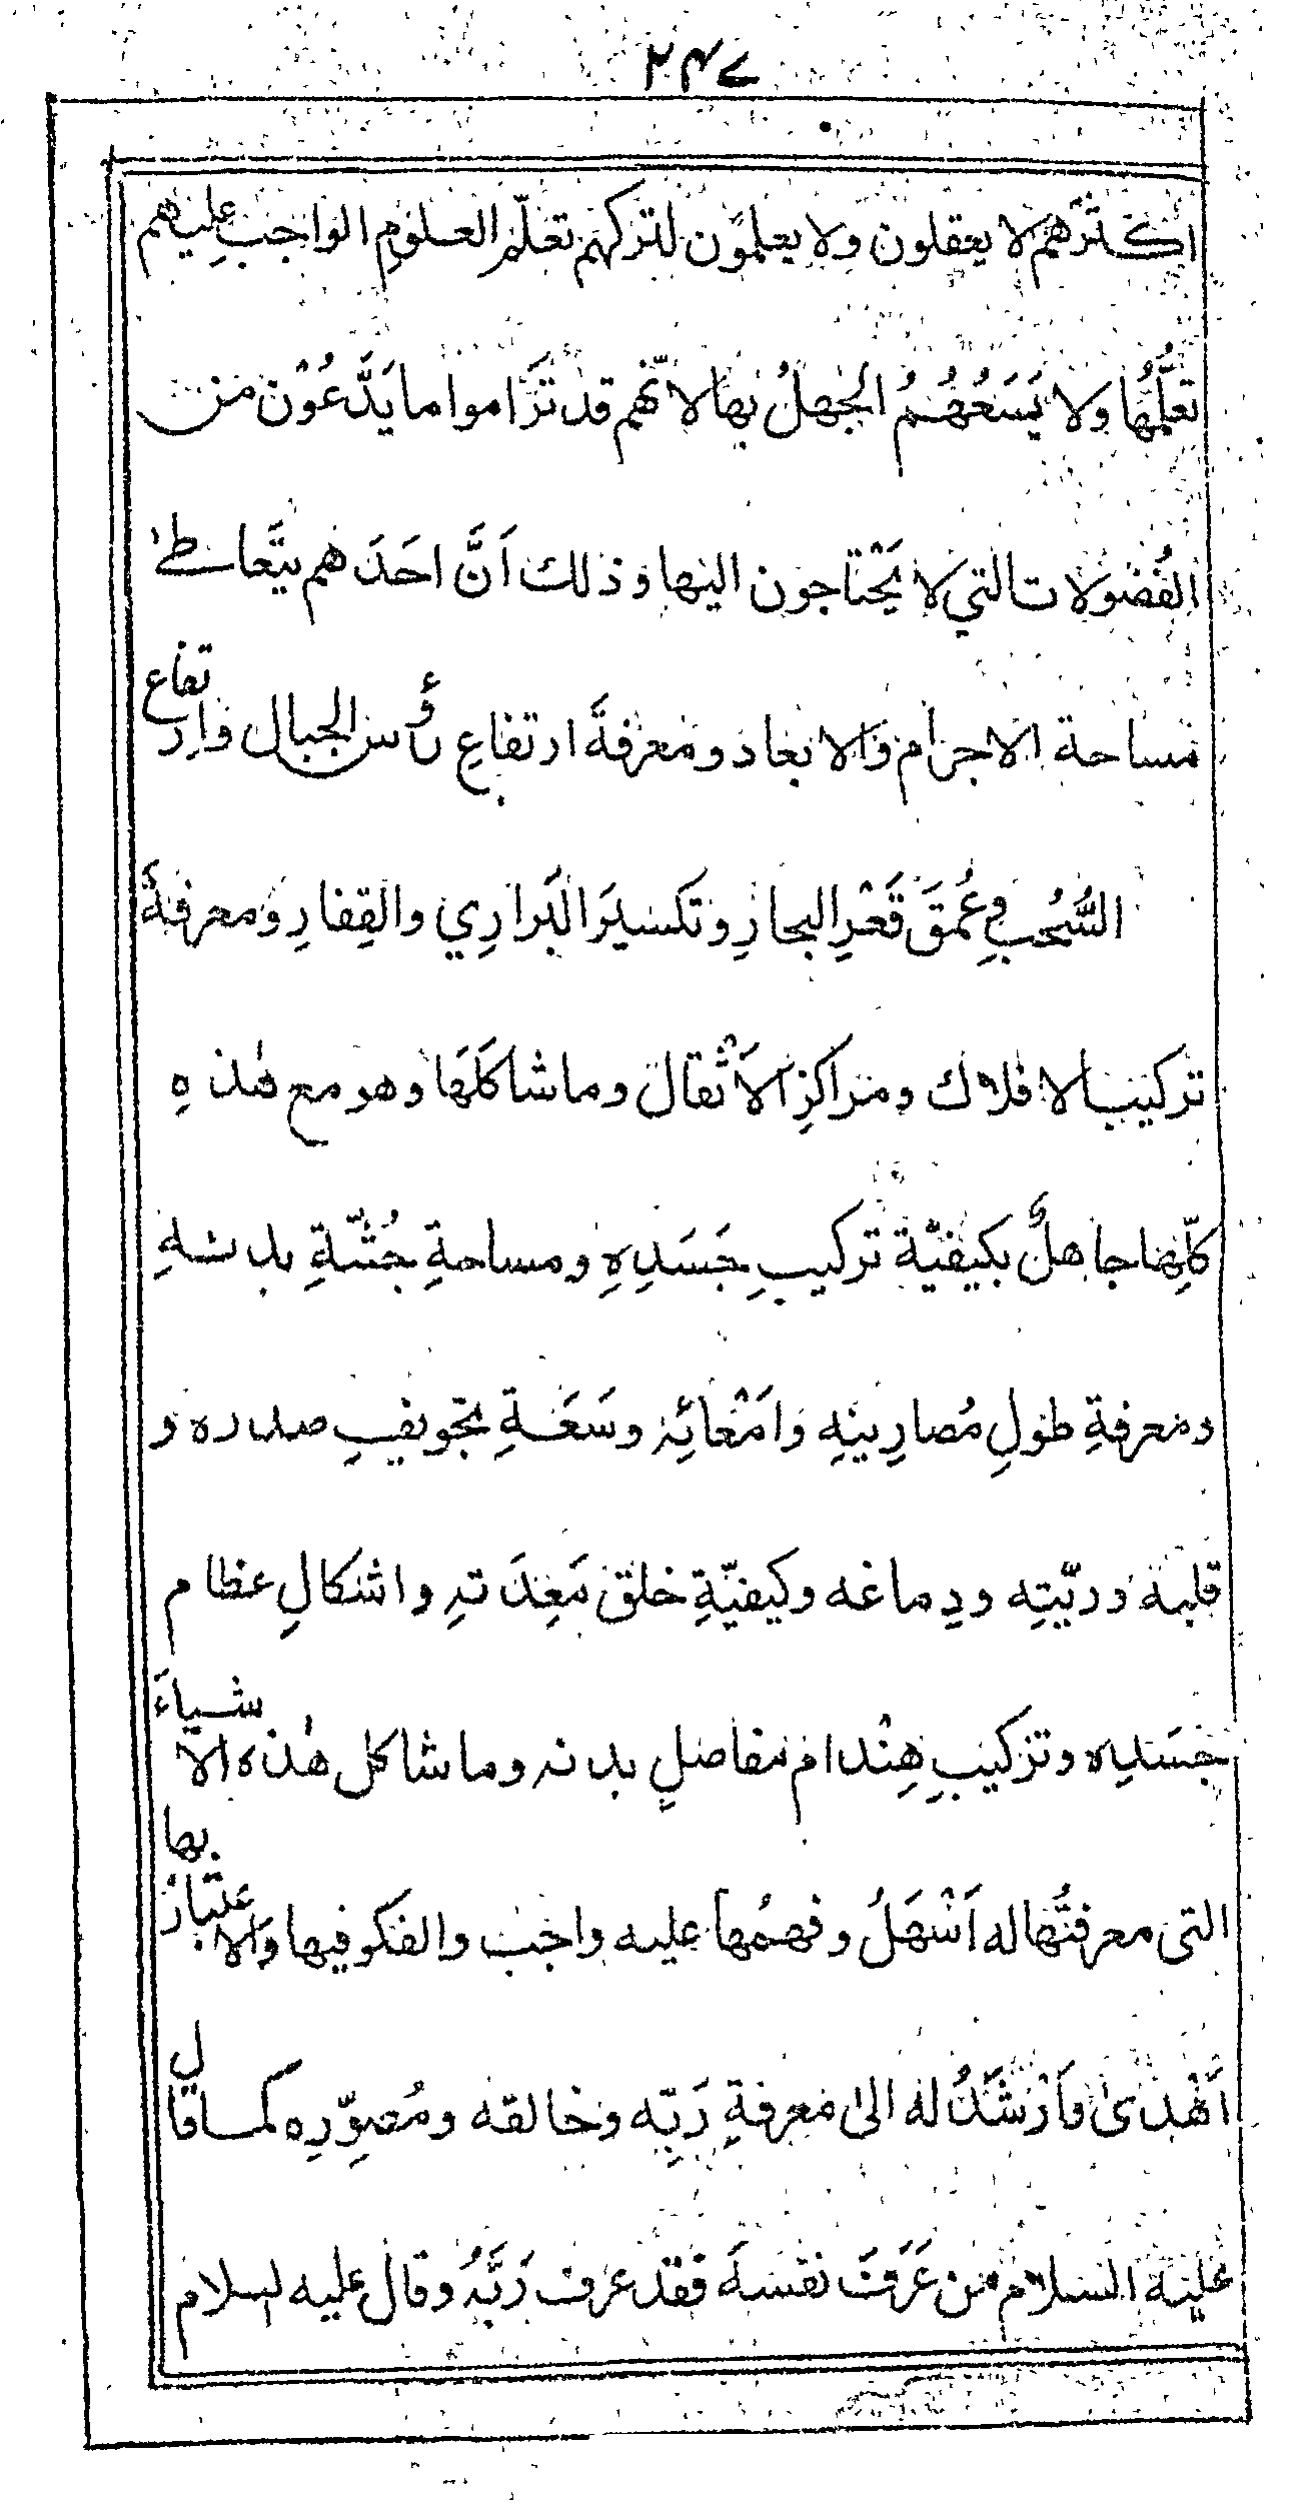 ٢٤٧
اكثرهم لا يعقلون ولا يعلمون لتركهم تعلّم العلومِ الواجب عليهم
تعلُّمُها ولا يَسَعُهُمُ الجهلُ بها لانّهم قد تَرَاموا ما يَدَّعُوْن من
الفُضولات التي لا يَحْتاجون اليها وذلك اَنَّ احَدَهم يتَعاطىٰ
مساحة الاجرام والابعاد ومعرفةَ ارتفاعِ رؤس الجبال وارتفاع
السُّحُبِ في عُمقَ قَعْرِ البحارِ وتكسيرَ البَرارِي والقِفارِ ومعرفةَ
تركيب الافلاك ومراكزِ الاَثْقال وما شاكَلَها وهو مع هٰذهِ
كلِّها جاهلٌ بكيفيّة تركيبِ جَسَدِهِ ومساحةِ جُثّةِ بدنهِ
ومعرفةِ طولِ مُصارِينِهِ وَامْعائِه وسَعَةِ تجويفِ صدره و
قلبه وريّتِه ودِماغه وكيفيّةِ خلق مَعِدَتهِ واشكالِ عظام
جسَدِه وتركيبِ هِنْدام مفاصلِ بدنه وما شاكل هٰذه الاشياءَ
التى معرفتُها له اَسْهَلُ وفهمُها عليه واجب والفكر فيها وَالاعتبارُ بها
اَهْدىٰ واَرْشَدُ له الىٰ معرفةِ رَبِّه وخالقه ومُصوِّرِه كما قال
عليه السلام من عَرَفَ نفسَه فقد عرف رَبَّهُ وقال عليه السلام